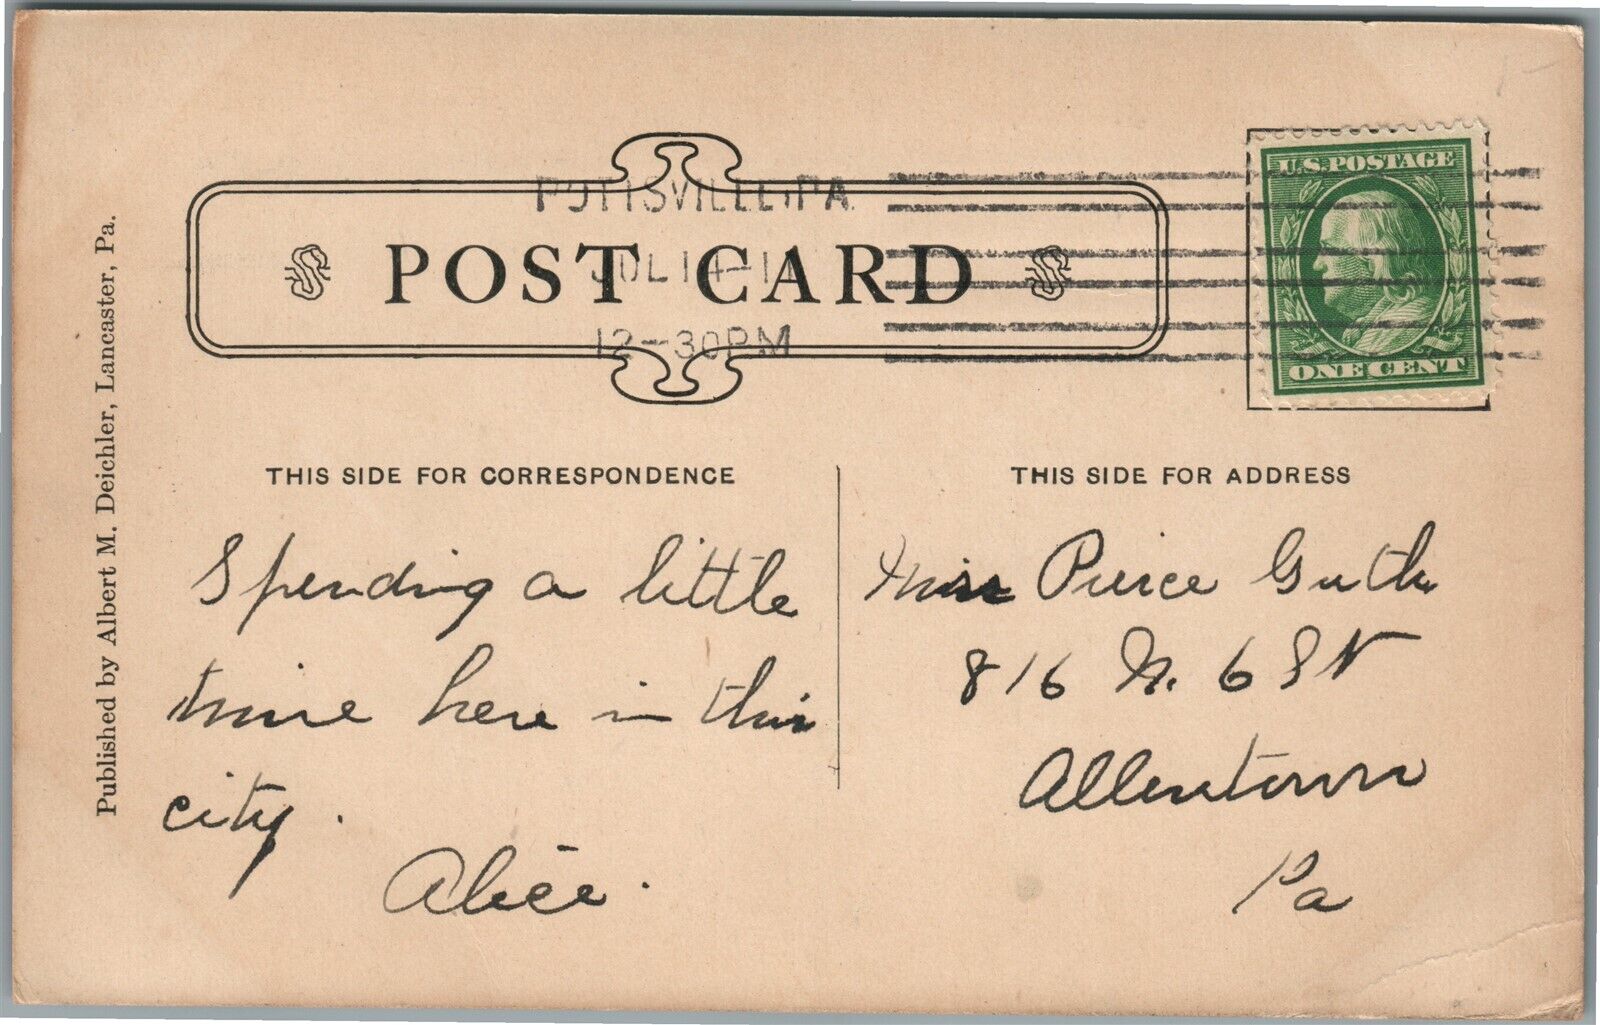 POTTSVILLE, PA.
JUL 14-11
12-30PM
POST CARD
U.S. POSTAGE
ONE CENT
Published by Albert M. Deichler, Lancaster, Pa.
THIS SIDE FOR CORRESPONDENCE
Spending a little
time here in this
city.
Alice.
THIS SIDE FOR ADDRESS
Miss Pierce Guth
816 N. 6 St
Allentown
Pa